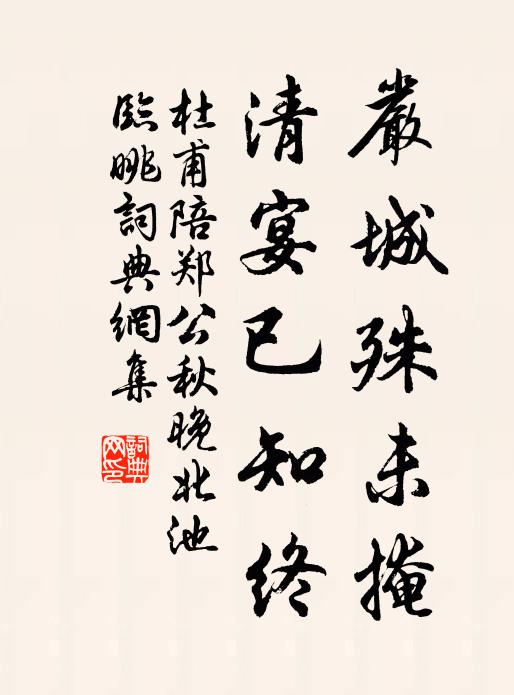 嚴城殊未掩
清宴已知終
杜甫陪郑公秋晚北池
臨眺詞典網集
詞典
网印